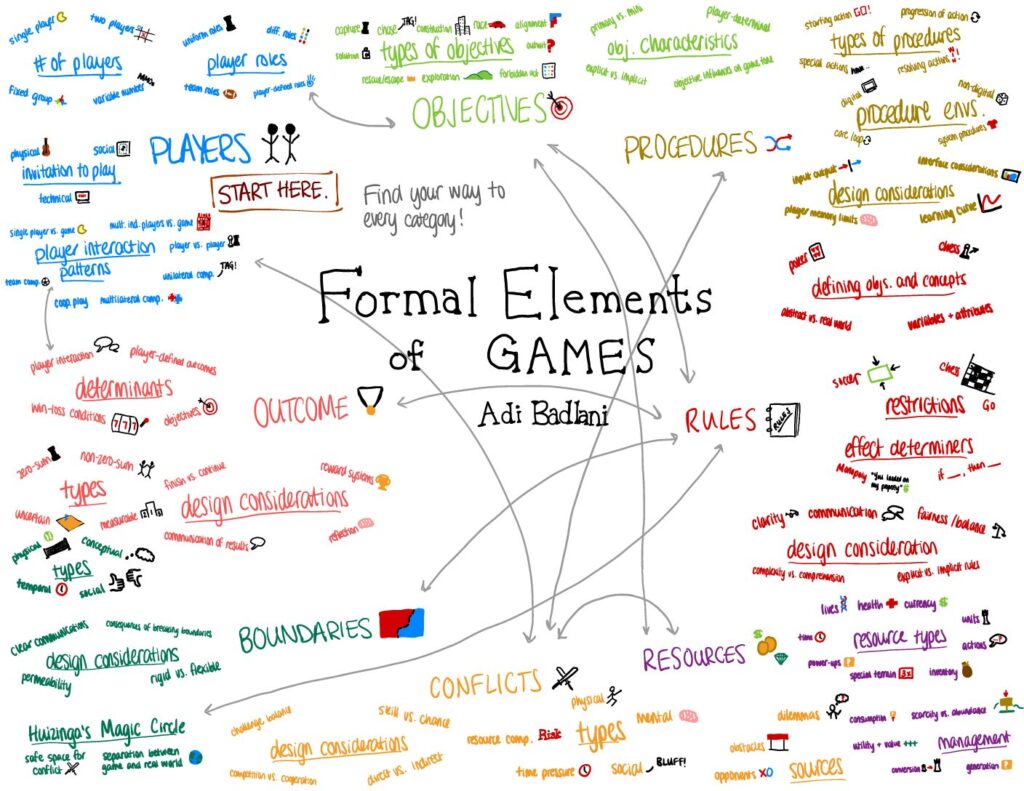 single player
two players
# of players
fixed group
variable number
uniform roles
diff. roles
player roles
team roles
player-defined roles
physical
social
invitation to play
technical
PLAYERS
START HERE.
Find your way to
every category!
single player vs. game
mult. ind. players vs. game
player interaction
patterns
player vs. player
team comp.
unilateral comp.
TAG!
coop. play
multilateral comp.
capture
chase
TAG!
construction
race
alignment
solution
types of objectives
outwit
?
rescue/escape
exploration
forbidden act
primary vs. mini
player-determined
obj. characteristics
explicit vs. implicit
objective influences on game tone
OBJECTIVES
starting action GO!
progression of action
types of procedures
special actions
resolving actions
digital
non-digital
procedure envs.
core loop
system procedures
PROCEDURES
input output
interface considerations
design considerations
player memory limits
learning curve
Formal Elements
of GAMES
Adi Badlani
poker
chess
defining objs. and concepts
abstract vs. real world
variables + attributes
soccer
chess
restrictions
GO
effect determiners
Monopoly "You landed on
my property"
if __, then __
RULES
RULES
clarity
communication
fairness/balance
design consideration
complexity vs. comprehension
explicit vs. implicit rules
player interaction
player-defined outcomes
determinants
win-loss conditions
777
objectives
OUTCOME
zero-sum
non-zero-sum
types
uncertain
measurable
finish vs. continue
reward systems
design considerations
communication of results
reflection
physical
conceptual
types
temporal
social
clear communications
consequences of breaking boundaries
design considerations
permeability
rigid vs. flexible
BOUNDARIES
Huizinga's Magic Circle
safe space for
conflict
separation between
game and real world
CONFLICTS
challenge balance
skill vs. chance
design considerations
competition vs. cooperation
direct vs. indirect
physical
resource comp. Risk
types
mental
time pressure
social
BLUFF!
dilemmas
obstacles
opponents XO
sources
RESOURCES
$
lives
health
currency $
time
resource types
units
actions
power-ups
?
special terrain
3x
inventory
consumption
scarcity vs. abundance
utility + value +++
management
conversion
generation
?